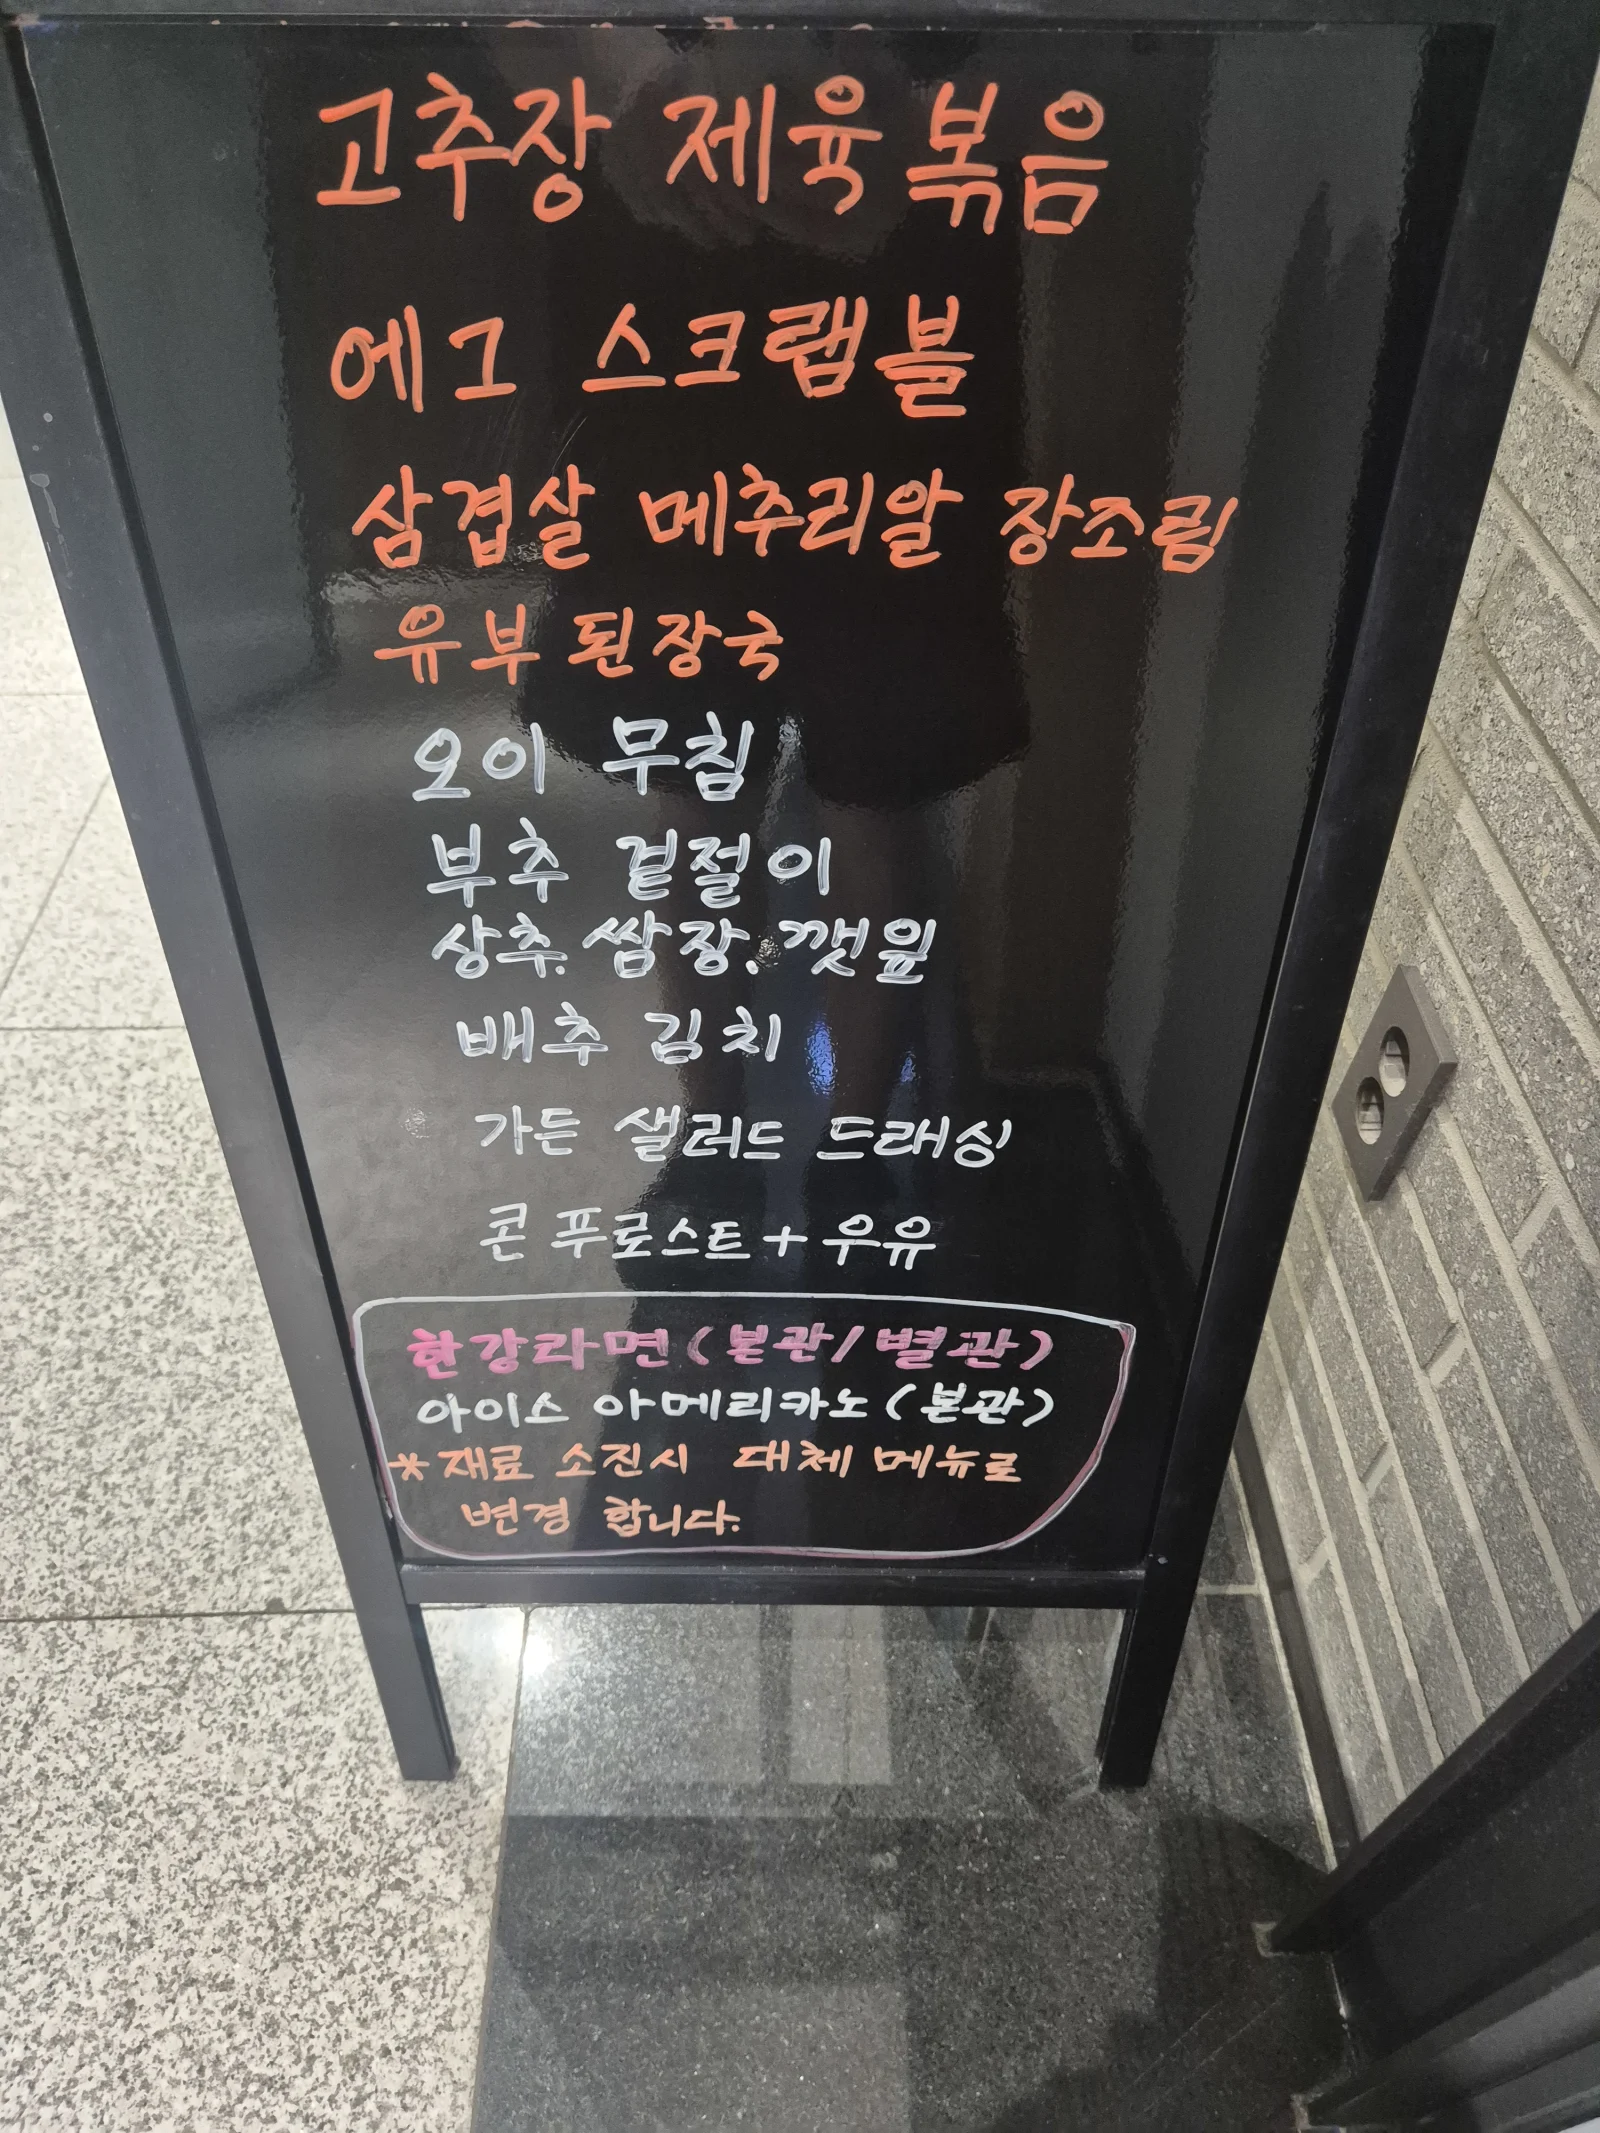 고추장 제육볶음
에그 스크램블
삼겹살 메추리알 장조림
유부 된장국
오이 무침
부추 겉절이
상추. 쌈장. 깻잎
배추 김치
가든 샐러드 드래싱
콘 푸로스트 + 우유
한강라면 (본관/별관)
아이스 아메리카노 (본관)
*재료 소진시 대체 메뉴로
변경 합니다.